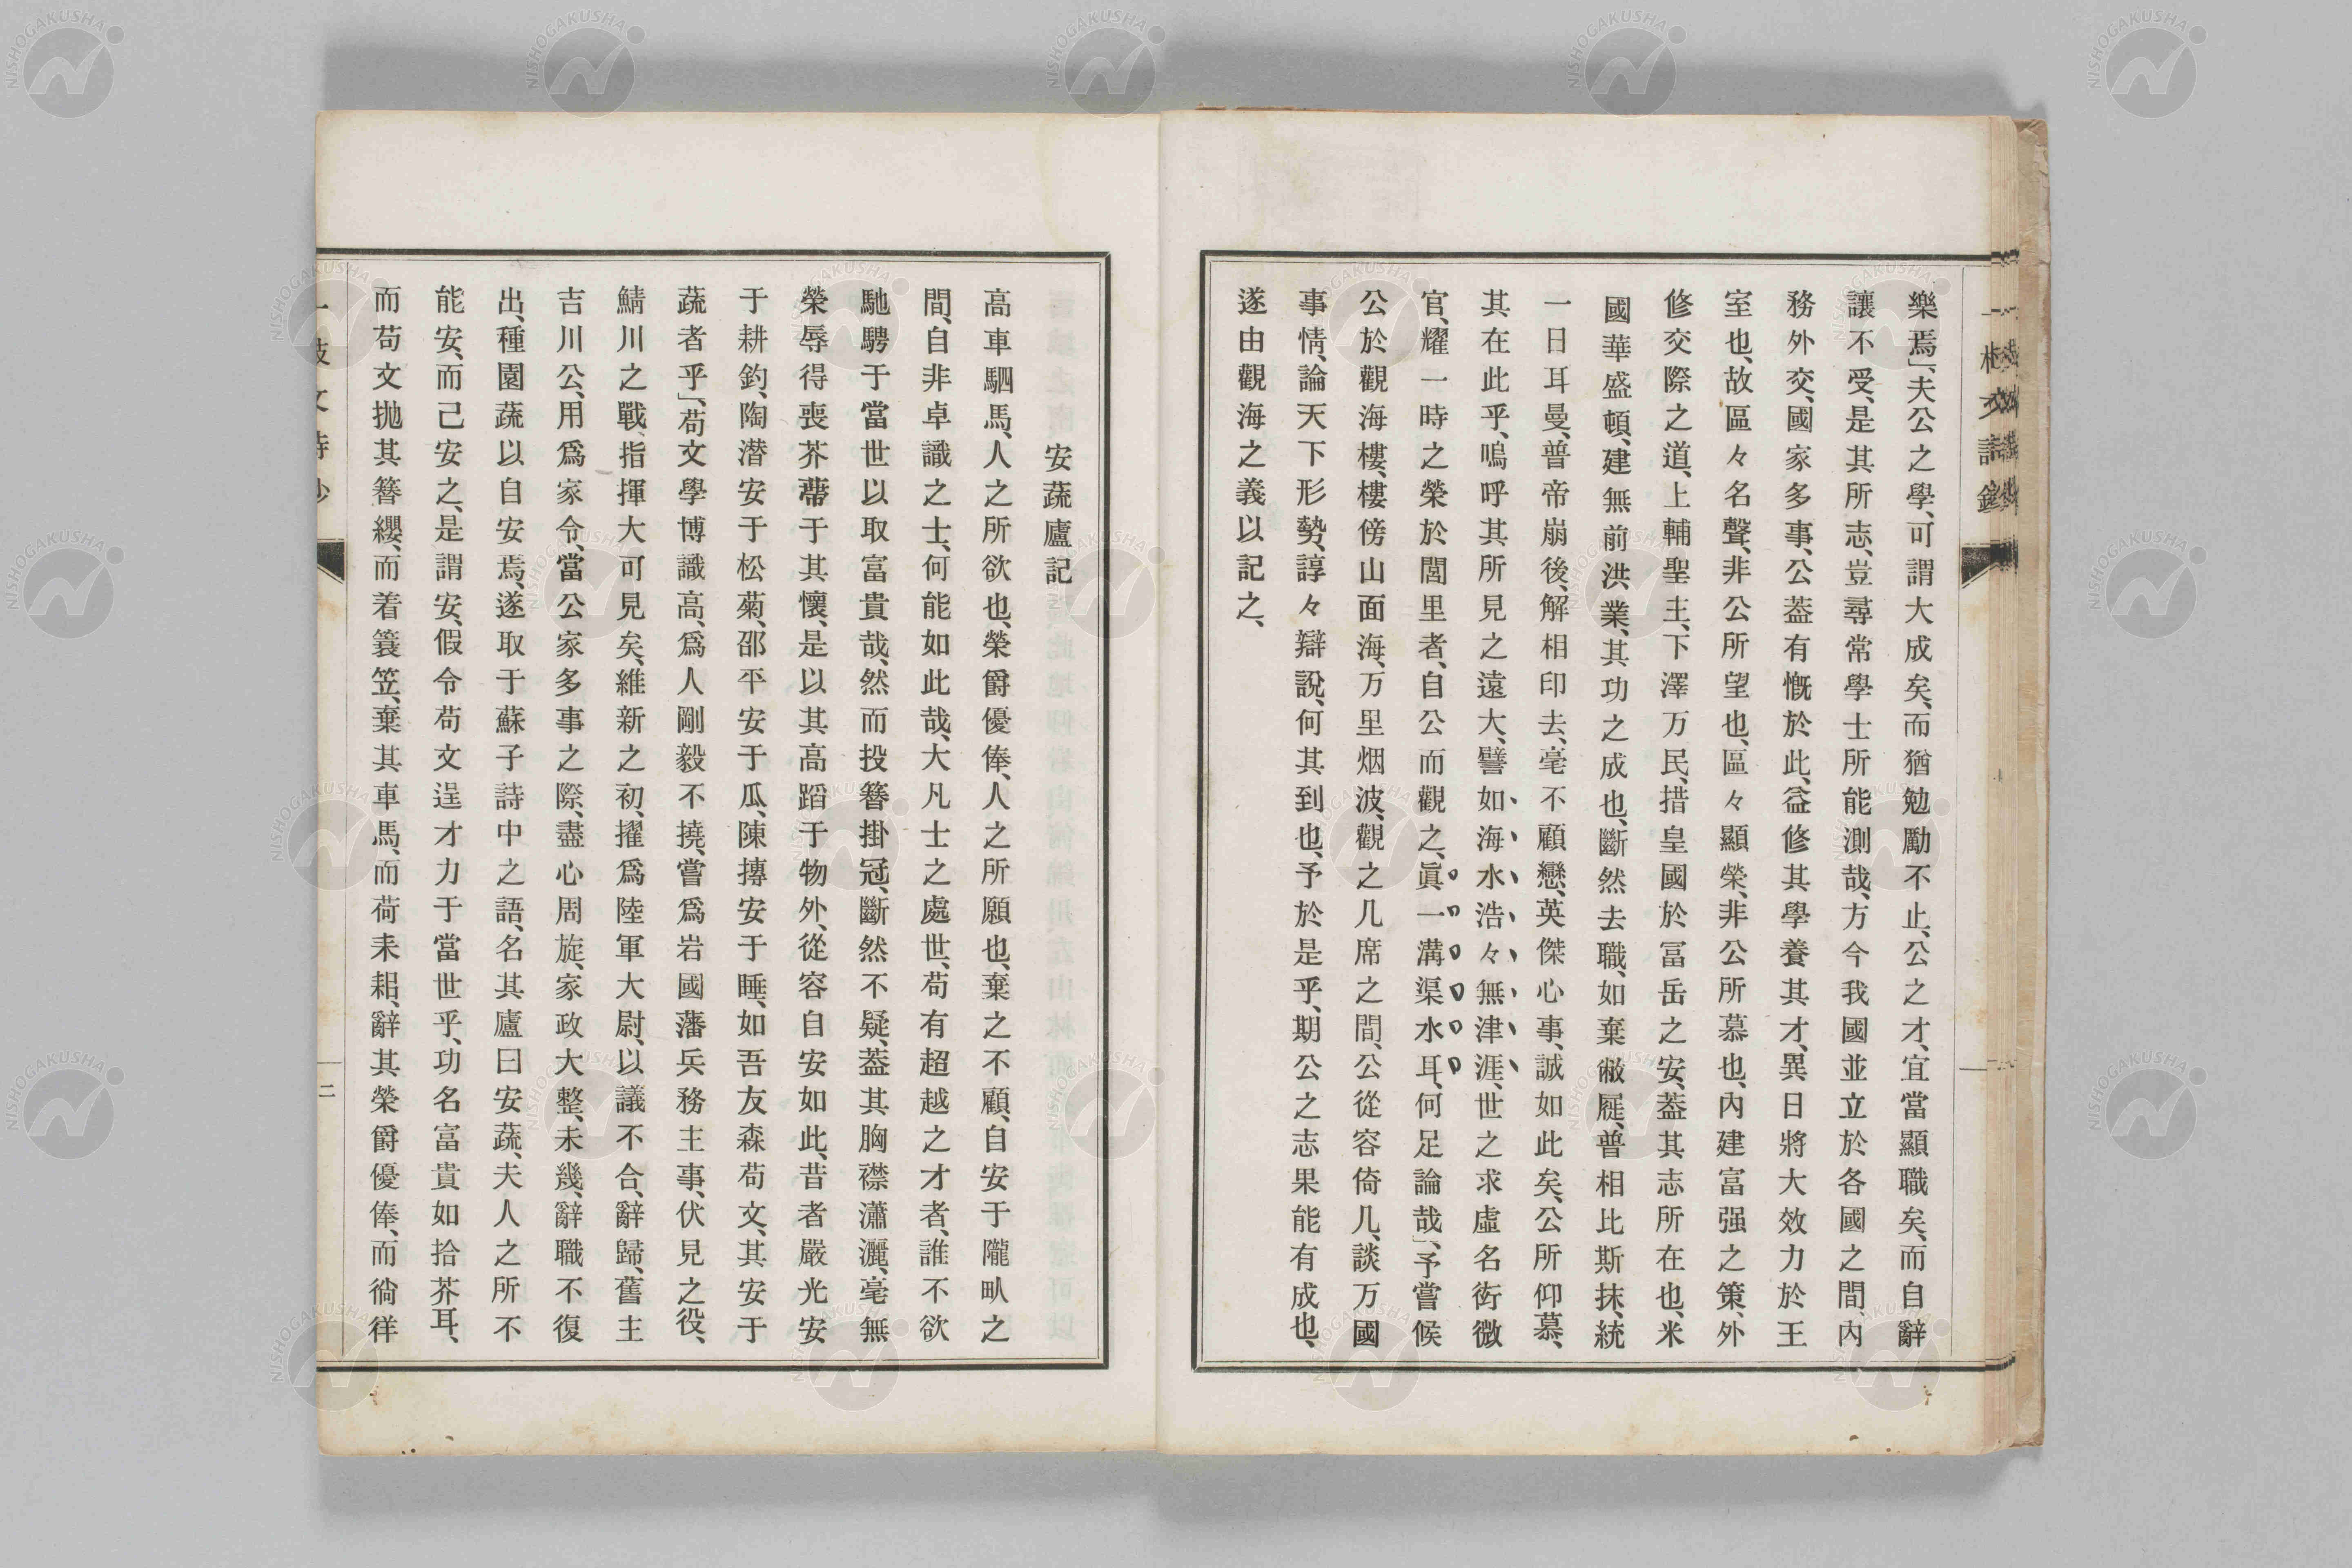 樂焉」、夫公之學、可謂大成矣、而猶勉勵不止、公之才、宜當顯職矣、而自辭
讓不受、是其所志、豈尋常學士所能測哉、方今我國並立於各國之間、內
務外交、國家多事、公葢有慨於此、益修其學養其才、異日將大效力於王
室也、故區々名聲、非公所望也、區々顯榮、非公所慕也、內建富强之策、外
修交際之道、上輔聖主、下澤万民、措皇國於冨岳之安、葢其志所在也、米
國華盛頓、建無前洪業、其功之成也、斷然去職、如棄敝屣、普相比斯抹、統
一日耳曼、普帝崩後、解相印去、毫不顧戀、英傑心事、誠如此矣、公所仰慕、
其在此乎、嗚呼其所見之遠大、譬如海水浩々無津涯、世之求虛名衒微
官、耀一時之榮於閭里者、自公而觀之、眞一溝渠水耳、何足論哉」、予嘗候
公於觀海樓、樓傍山面海、万里烟波、觀之几席之間、公從容倚几、談万國
事情、論天下形勢、諄々辯說、何其到也、予於是乎、期公之志果能有成也、
遂由觀海之義以記之、
安蔬廬記
高車駟馬、人之所欲也、榮爵優俸、人之所願也、棄之不顧、自安于隴畎之
間、自非卓識之士、何能如此哉、大凡士之處世、苟有超越之才者、誰不欲
馳騁于當世以取富貴哉、然而投簪掛冠、斷然不疑、葢其胸襟瀟灑、毫無
榮辱得喪芥蔕于其懷、是以其高蹈于物外、從容自安如此、昔者嚴光安
于耕釣、陶潜安于松菊、邵平安于瓜、陳摶安于睡、如吾友森苟文、其安于
蔬者乎」、苟文學博識高、爲人剛毅不撓、嘗爲岩國藩兵務主事、伏見之役、
鯖川之戰、指揮大可見矣、維新之初、擢爲陸軍大尉、以議不合、辭歸、舊主
吉川公、用爲家令、當公家多事之際、盡心周旋、家政大整、未幾、辭職不復
出、種園蔬以自安焉、遂取于蘇子詩中之語、名其廬曰安蔬、夫人之所不
能安、而己安之、是謂安、假令苟文逞才力于當世乎、功名富貴如拾芥耳、
而苟文拋其簪纓、而着簑笠、棄其車馬、而荷耒耜、辭其榮爵優俸、而徜徉
二